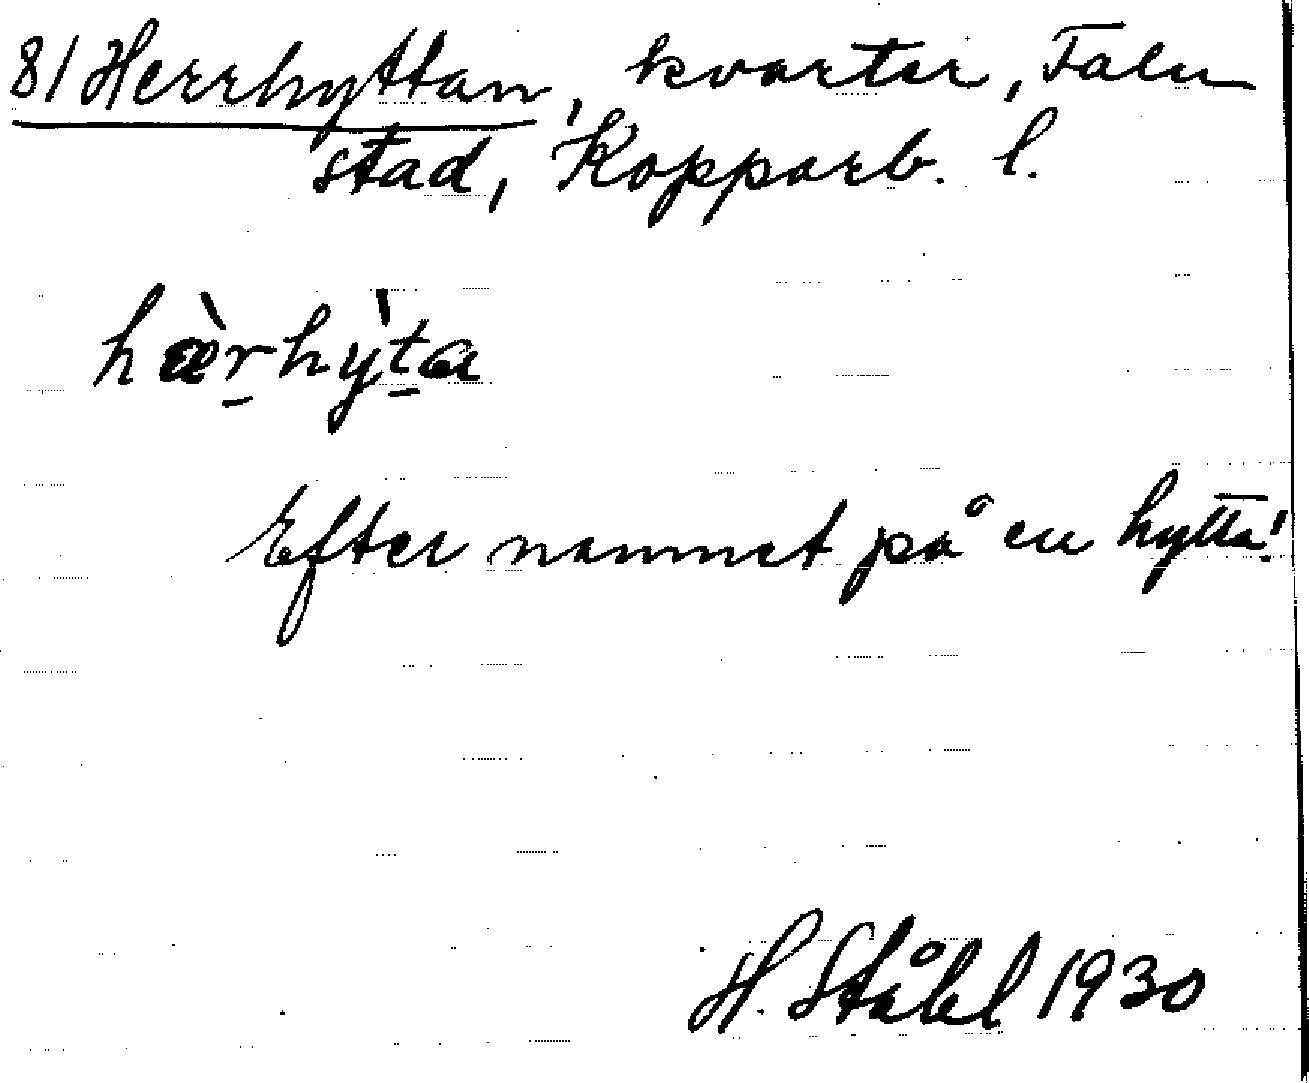 81 Herrhyttan, kvarter, Falu
stad, Kopparb. l.
hæ̀r̠hỳt̠a
Efter namnet på en hytta!
H. Ståhl 1930